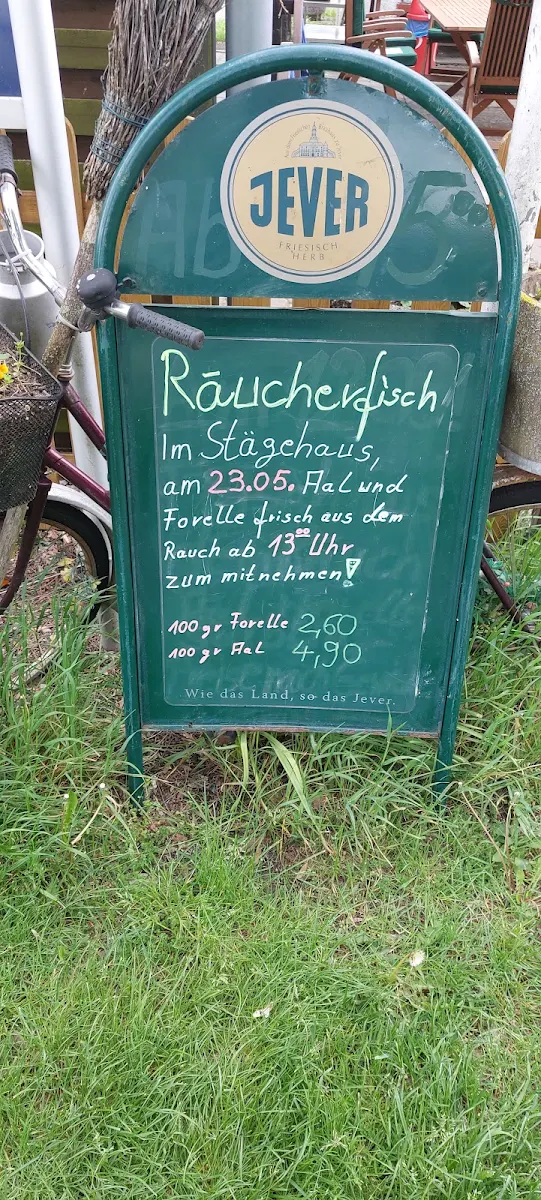 JEVER
FRIESISCH
HERB
Räucherfisch
Im Stägehaus,
am 23.05. Aal und
Forelle frisch aus dem
Rauch ab 13⁰⁰ Uhr
zum mitnehmen!
100 gr Forelle 2,60
100 gr Aal 4,90
Wie das Land, so das Jever.